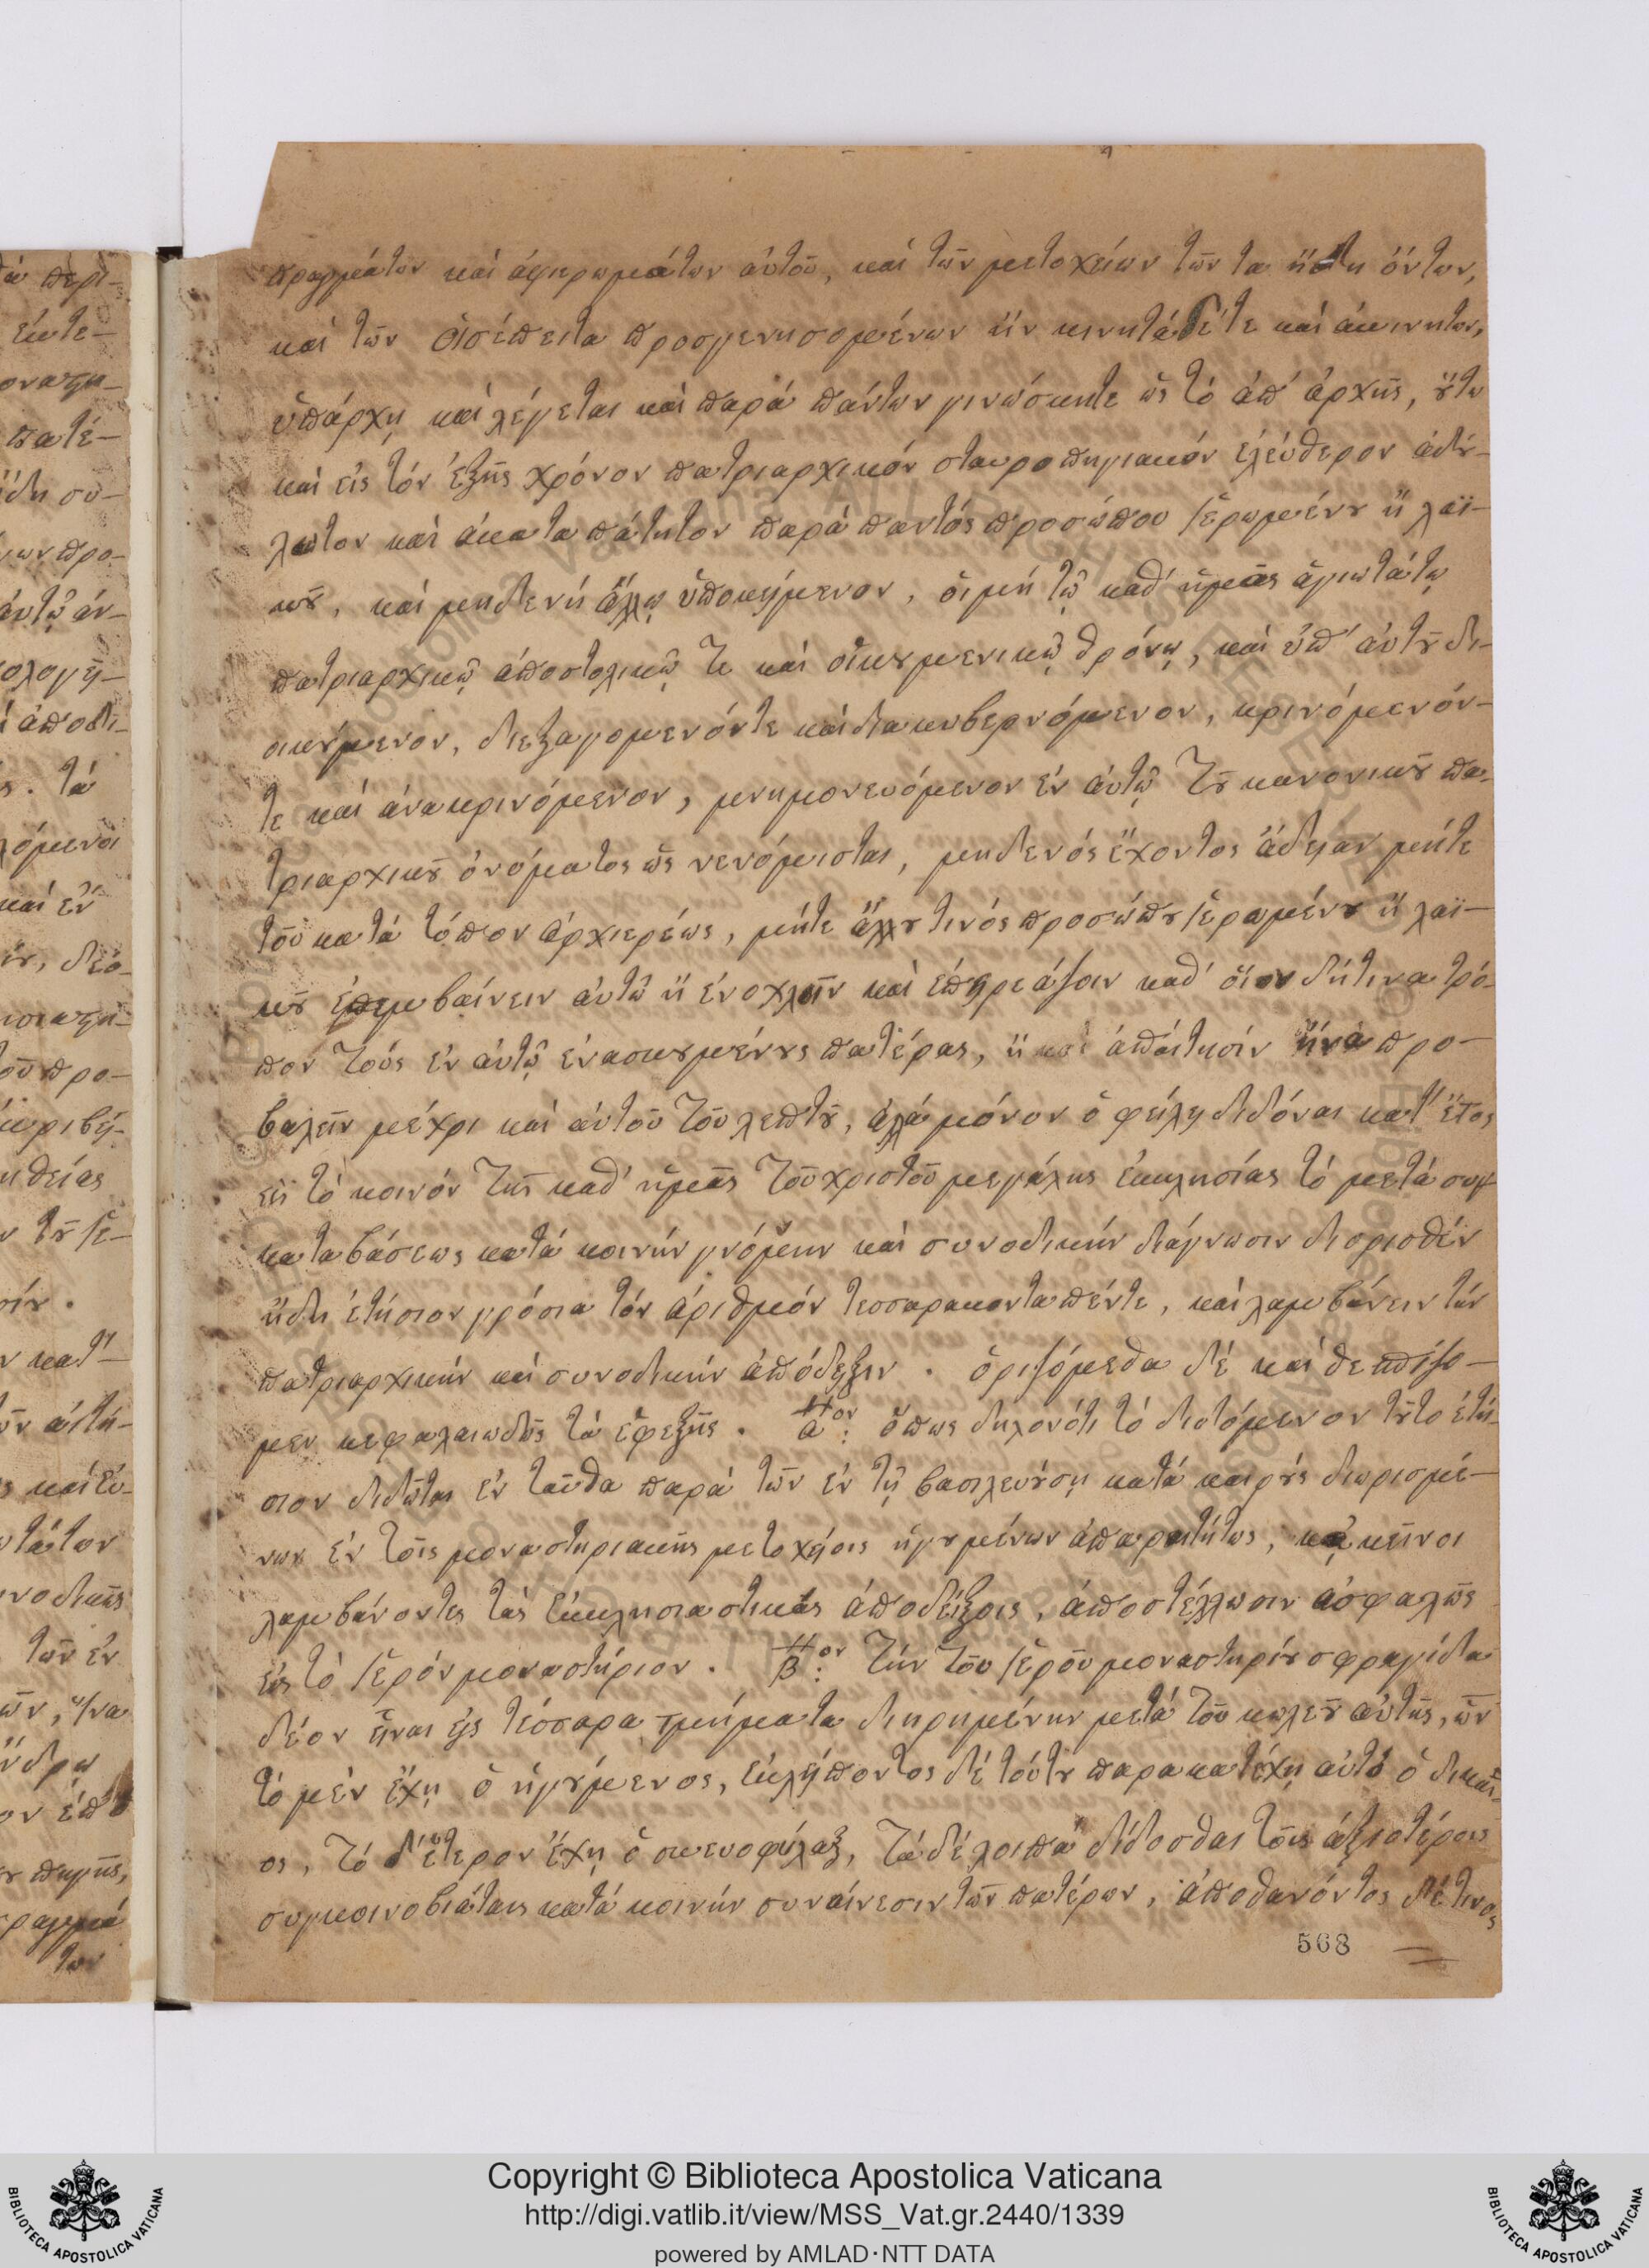 πραγμάτων καὶ ἀφιερωμάτων αὐτοῦ, καὶ τῶν μετοχείων τῶν τα ἤδη ὄντων,
καὶ τῶν εἰσέπειτα προσγενησομένων ἤν κινητάδέτε καὶ ἀκινητων,
ὑπάρχῃ καὶ λέγεται καὶ παρὰ πάντων γινώσκητε ὡς τὸ ἀπ' ἀρχῆς, ȣ̓́τω
καὶ εἰς τὸν ἑξῆς χρόνον πατριαρχικὸν σταυροπηγιακὸν ἐλεύθερον ἀδȣ́-
λωτον καὶ ἀκαταπάτητον παρὰ παντὸς προσώπου ἱερωμένȣ ἢ λαϊ-
κȣ̃, καὶ μηδενὴ ἄλλῳ ὑποκήμενον, οἰμὴ τῷ καθ' ἡμᾶς ἁγιωτάτῳ
πατριαρχικῷ ἀποστολικῷ τε καὶ οἰκȣμενικῷ θρόνῳ, καὶ ὑπ' αὐτȣ̃ δι-
οικȣ́μενον, διεξαγομενόντε καὶ διακυβερνόμενον, κρινόμενόν-
τε καὶ ἀνακρινόμενον, μνημονευόμενον ἐν αὐτῷ τȣ̃ κανονικȣ̃ πα-
τριαρχικȣ̃ ὀνόματος ὡς νενόμισται, μηδενός ἔχοντος ἄδειαν μήτε
τοῦ κατὰ τόπον ἀρχιερέως, μήτε ἄλλȣ τινός προσώπȣ ἱερωμένȣ ἢ λαϊ-
κȣ̃ ἐπεμβαίνειν αὐτῷ ἢ ἐνοχλῆν καὶ ἐπηρεάζοιν καθ' οἷον δήτινα τρό-
πον τοὺς ἐν αὐτῷ ἐνασκȣμένȣς πατέρας, ἢ καὶ ἀπαίτησίν τινὰ προ-
βαλῆν μέχρι καὶ αὐτοῦ τοῦ λεπτȣ̃, ἀλλὰ μόνον ὀφείλῃ διδόναι κατ' ἔτος
εἰς τὸ κοινὸν τῆς καθ' ἡμᾶς τοῦ χριστοῦ μεγάλης ἐκκλησίας τὸ μετὰ συγ
καταβάσεως κατὰ κοινὴν γνόμην καὶ συνοδικὴν διάγνωσιν διορισθὲν
ἤδη ἐτήσιον γρόσια τὸν ἀριθμὸν τεσσαρακονταπέντε, καὶ λαμβάνειν τὴν
πατριαρχικὴν καὶ συνοδικὴν ἀπόδηξιν. ὁριζόμεθα δὲ καὶ θεσπίζο-
μεν κεφαλαιωδῶς τὰ ἐφεξῆς. Αον: ὅπως δηλονότι τὸ διδόμενον τȣ̃το ἐτή-
σιον διδῶται ἐνταῦθα παρὰ τῶν ἐν τῇ βασιλευȣ́σῃ κατὰ καιρȣ̀ς διωρισμέ-
νων ἐν τοῖς μοναστηριακῆς μετοχήοις ἡγȣμένων ἀπαραιτήτως, κἀκῆνοι
λαμβάνοντες τὰς ἐκκλησιαστικὰς ἀποδείξεις, ἀποστέλλωσιν ἀσφαλῶς
εἰς τὸ ἱερὸν μοναστήριον. Βον: τὴν τοῦ ἱεροῦ μοναστηρίȣ σφραγίδα
δέον εἶναι εἰς τέσσαρα τμήματα διῃρημένην μετὰ τοῦ κωλεȣ̃ αὐτῆς, ὧν
τὸ μὲν ἔχῃ ὁ ἡγȣ́μενος, ἐκλήποντος δὲ τούτȣ παρακατέχῃ αὐτὸ ὁ δικαῖ-
ος, τὸ δ' ἕτερον ἔχῃ ὁ σκευοφύλαξ, τὰ δὲ λοιπὰ δίδοσθαι τοῖς ἀξιοτέροις
συγκοινοβιάταις κατὰ κοινὴν συναίνεσιν τῶν πατέρων, ἀποθανόντος δέ τινος
568
Copyright © Biblioteca Apostolica Vaticana
http://digi.vatlib.it/view/MSS_Vat.gr.2440/1339
powered by AMLAD·NTT DATA
BIBLIOTECA APOSTOLICA VATICANA
BIBLIOTECA APOSTOLICA VATICANA